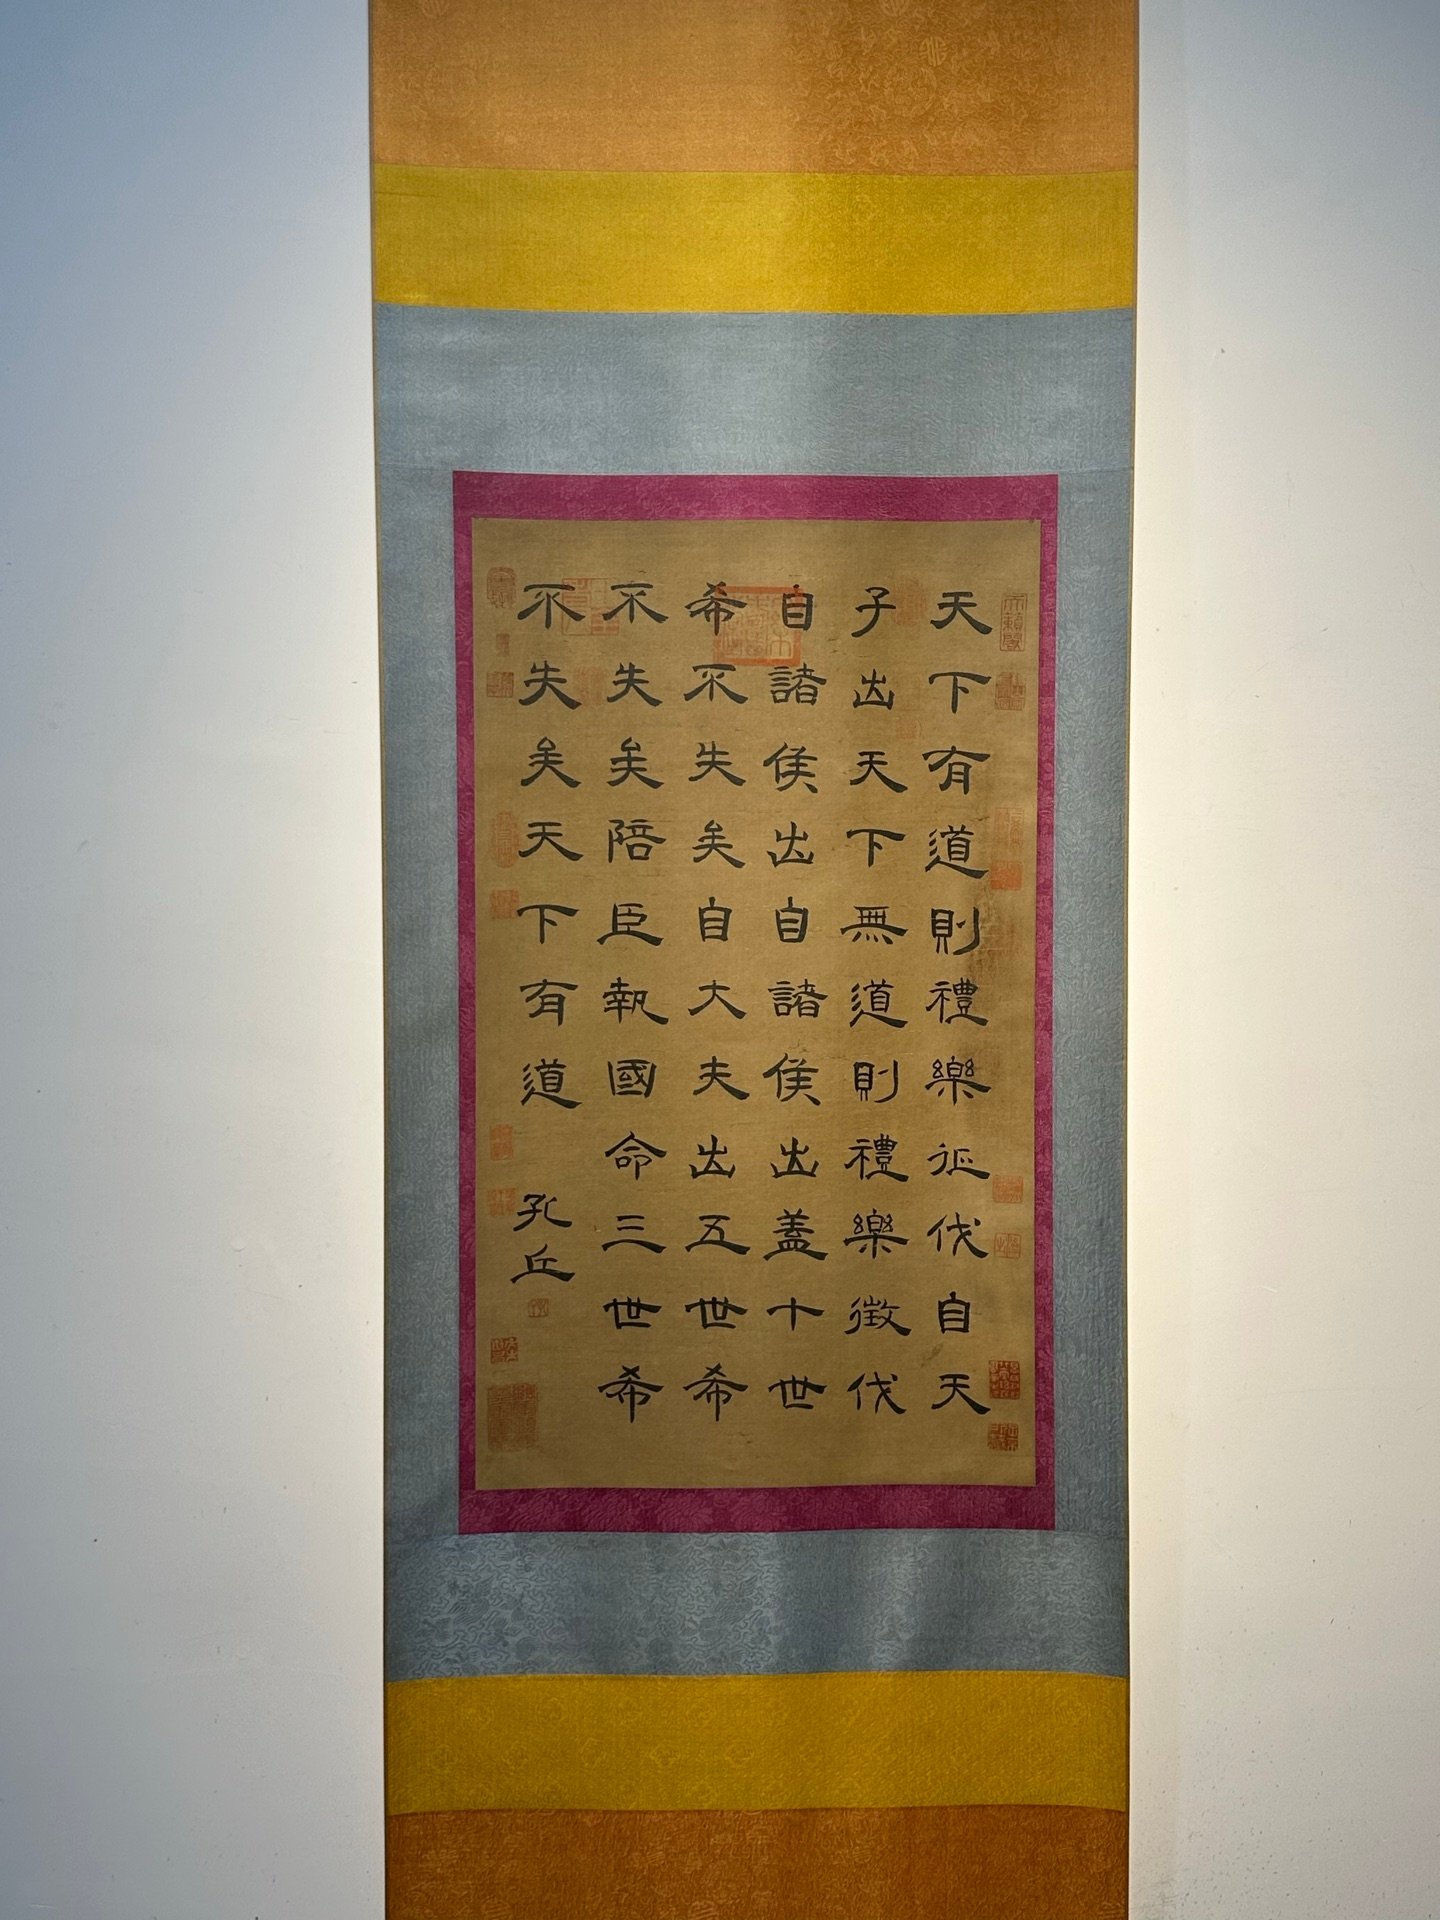 天下有道則禮樂征伐自天
子出天下無道則禮樂徵伐
自諸侯出自諸侯出蓋十世
希不失矣自大夫出五世希
不失矣陪臣執國命三世希
不失矣天下有道
孔丘
天籟閣